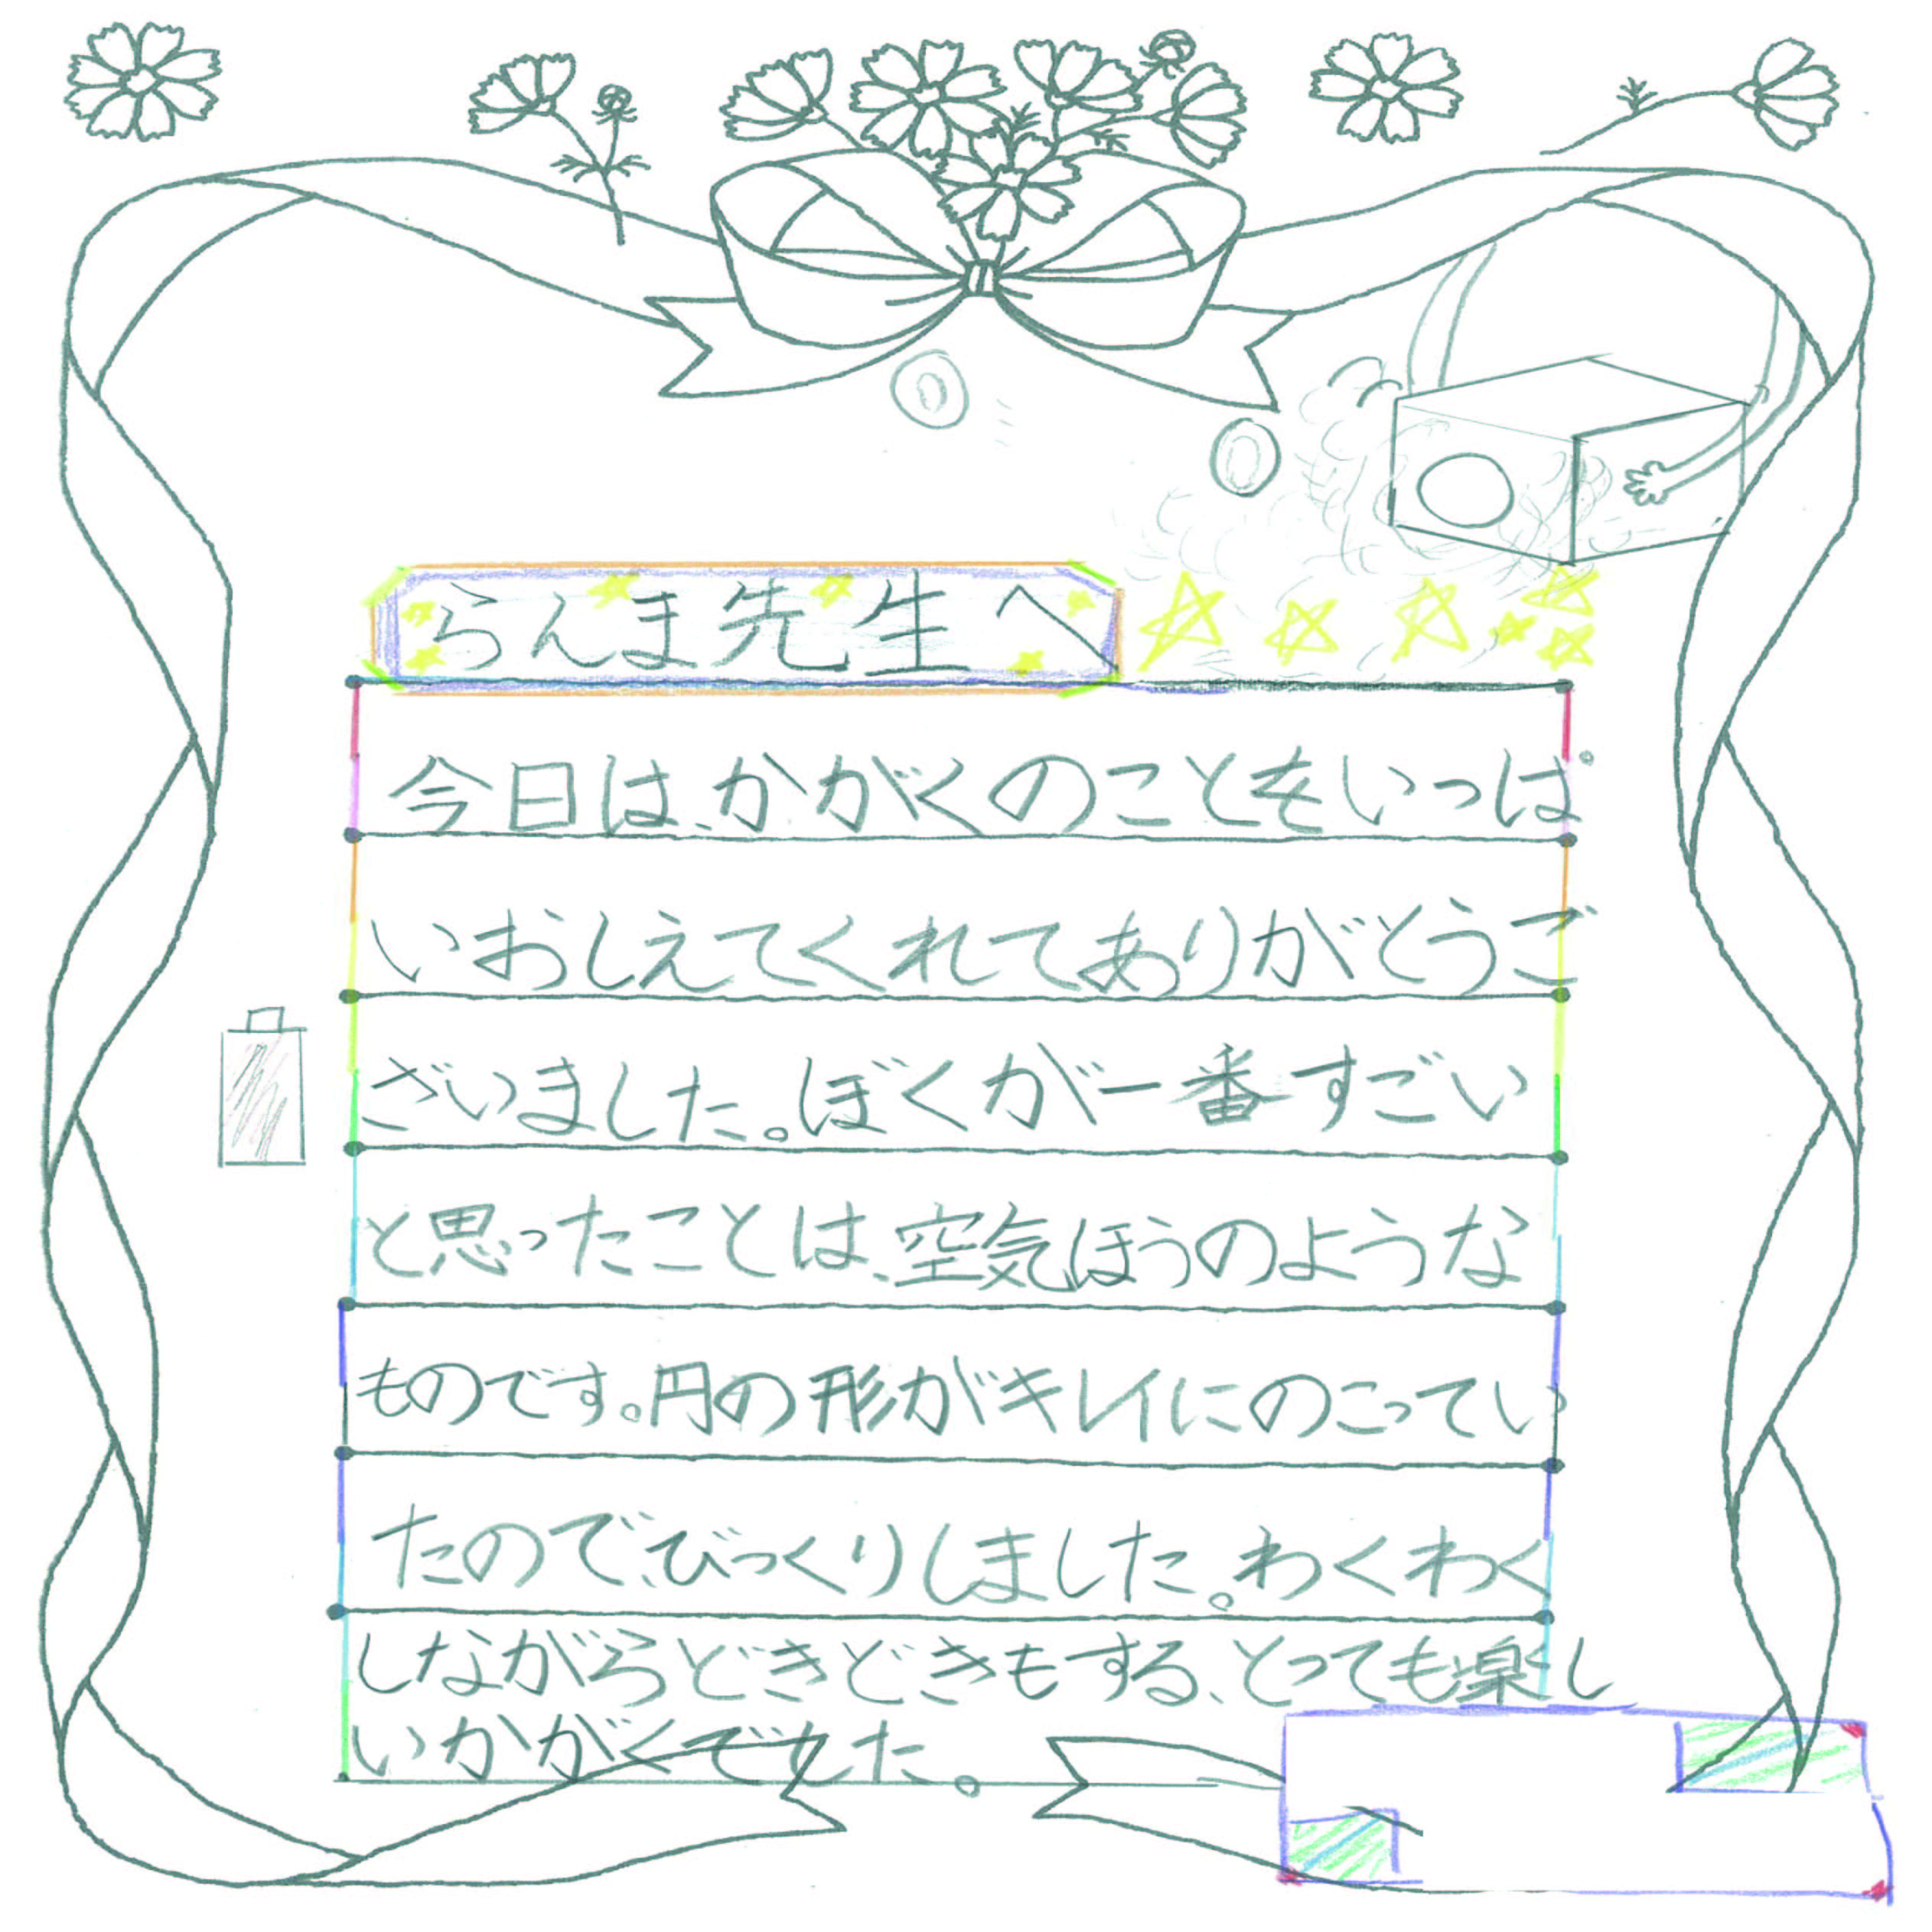 らんま先生へ
今日は、かがくのことをいっぱ
いおしえてくれてありがとうご
ざいました。ぼくが一番すごい
と思ったことは、空気ほうのような
ものです。円の形がキレイにのこってい
たので、びっくりしました。わくわく
しながらどきどきもする、とっても楽し
いかがくでした。